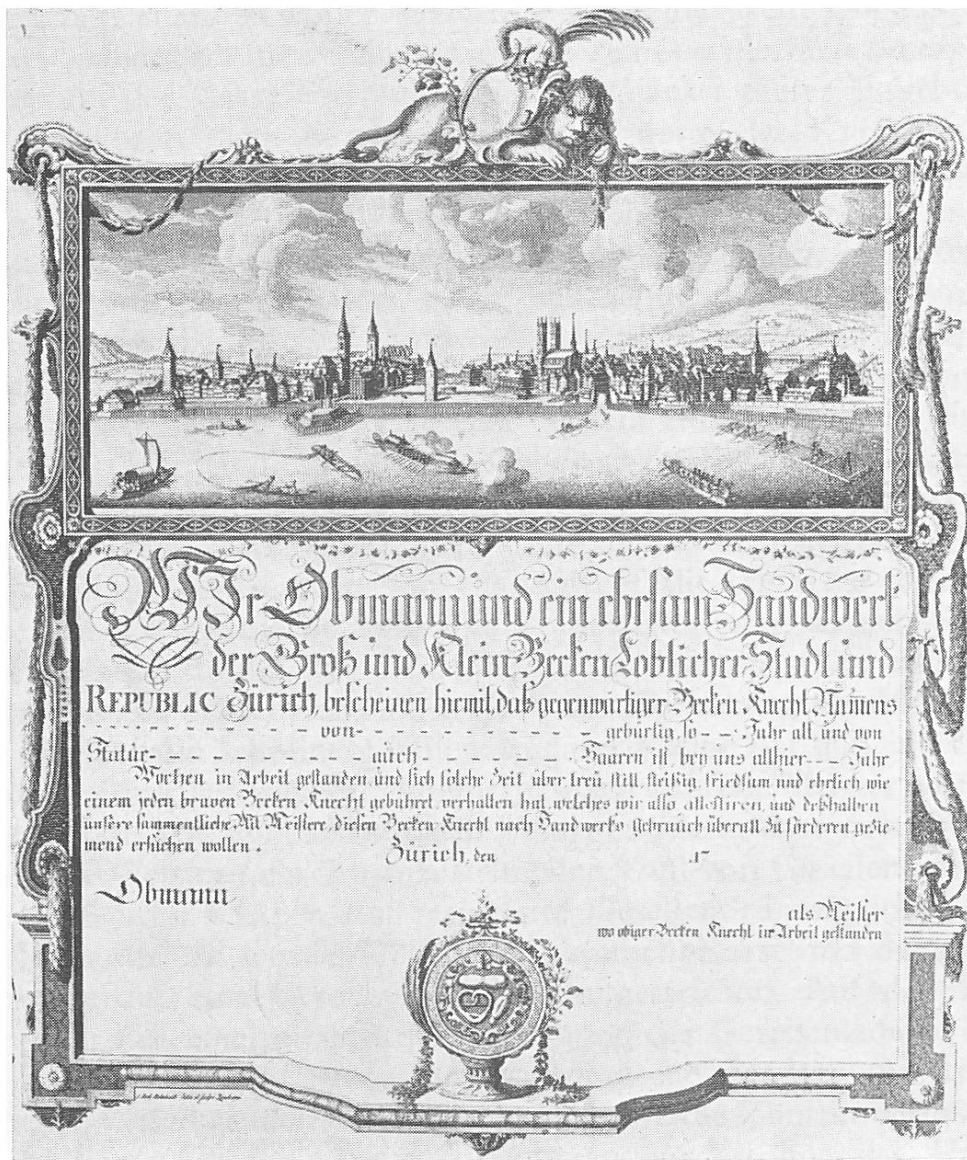 WIr Obmann und ein ehrsam Handwerk
der Groß und Klein Becken Loblicher Stadt und
REPUBLIC Zürich, bescheinen hiermit, daß gegenwärtiger Becken Knecht Namens
- - - - - - - - - - - von - - - - - - - - - - - gebürtig, so - - - Jahr alt, und von
Statur - - - - - - - - - - auch - - - - - - - - Haaren ist, bey uns allhier - - - Jahr
Wochen in Arbeit gestanden, und sich solche Zeit über treü, still, fleißig, friedsam und ehrlich, wie
einem jeden braven Becken Knecht gebühret, verhalten hat, welches wir also attestiren, und deßhalben
ünsere sammentliche Mit Meistere, diesen Becken Knecht nach Handwerks Gebraüch überall zü förderen gezie
mend ersüchen wollen.
Zürich, den 17
Obmann
als Meister
wo obiger Becken Knecht in Arbeit gestanden